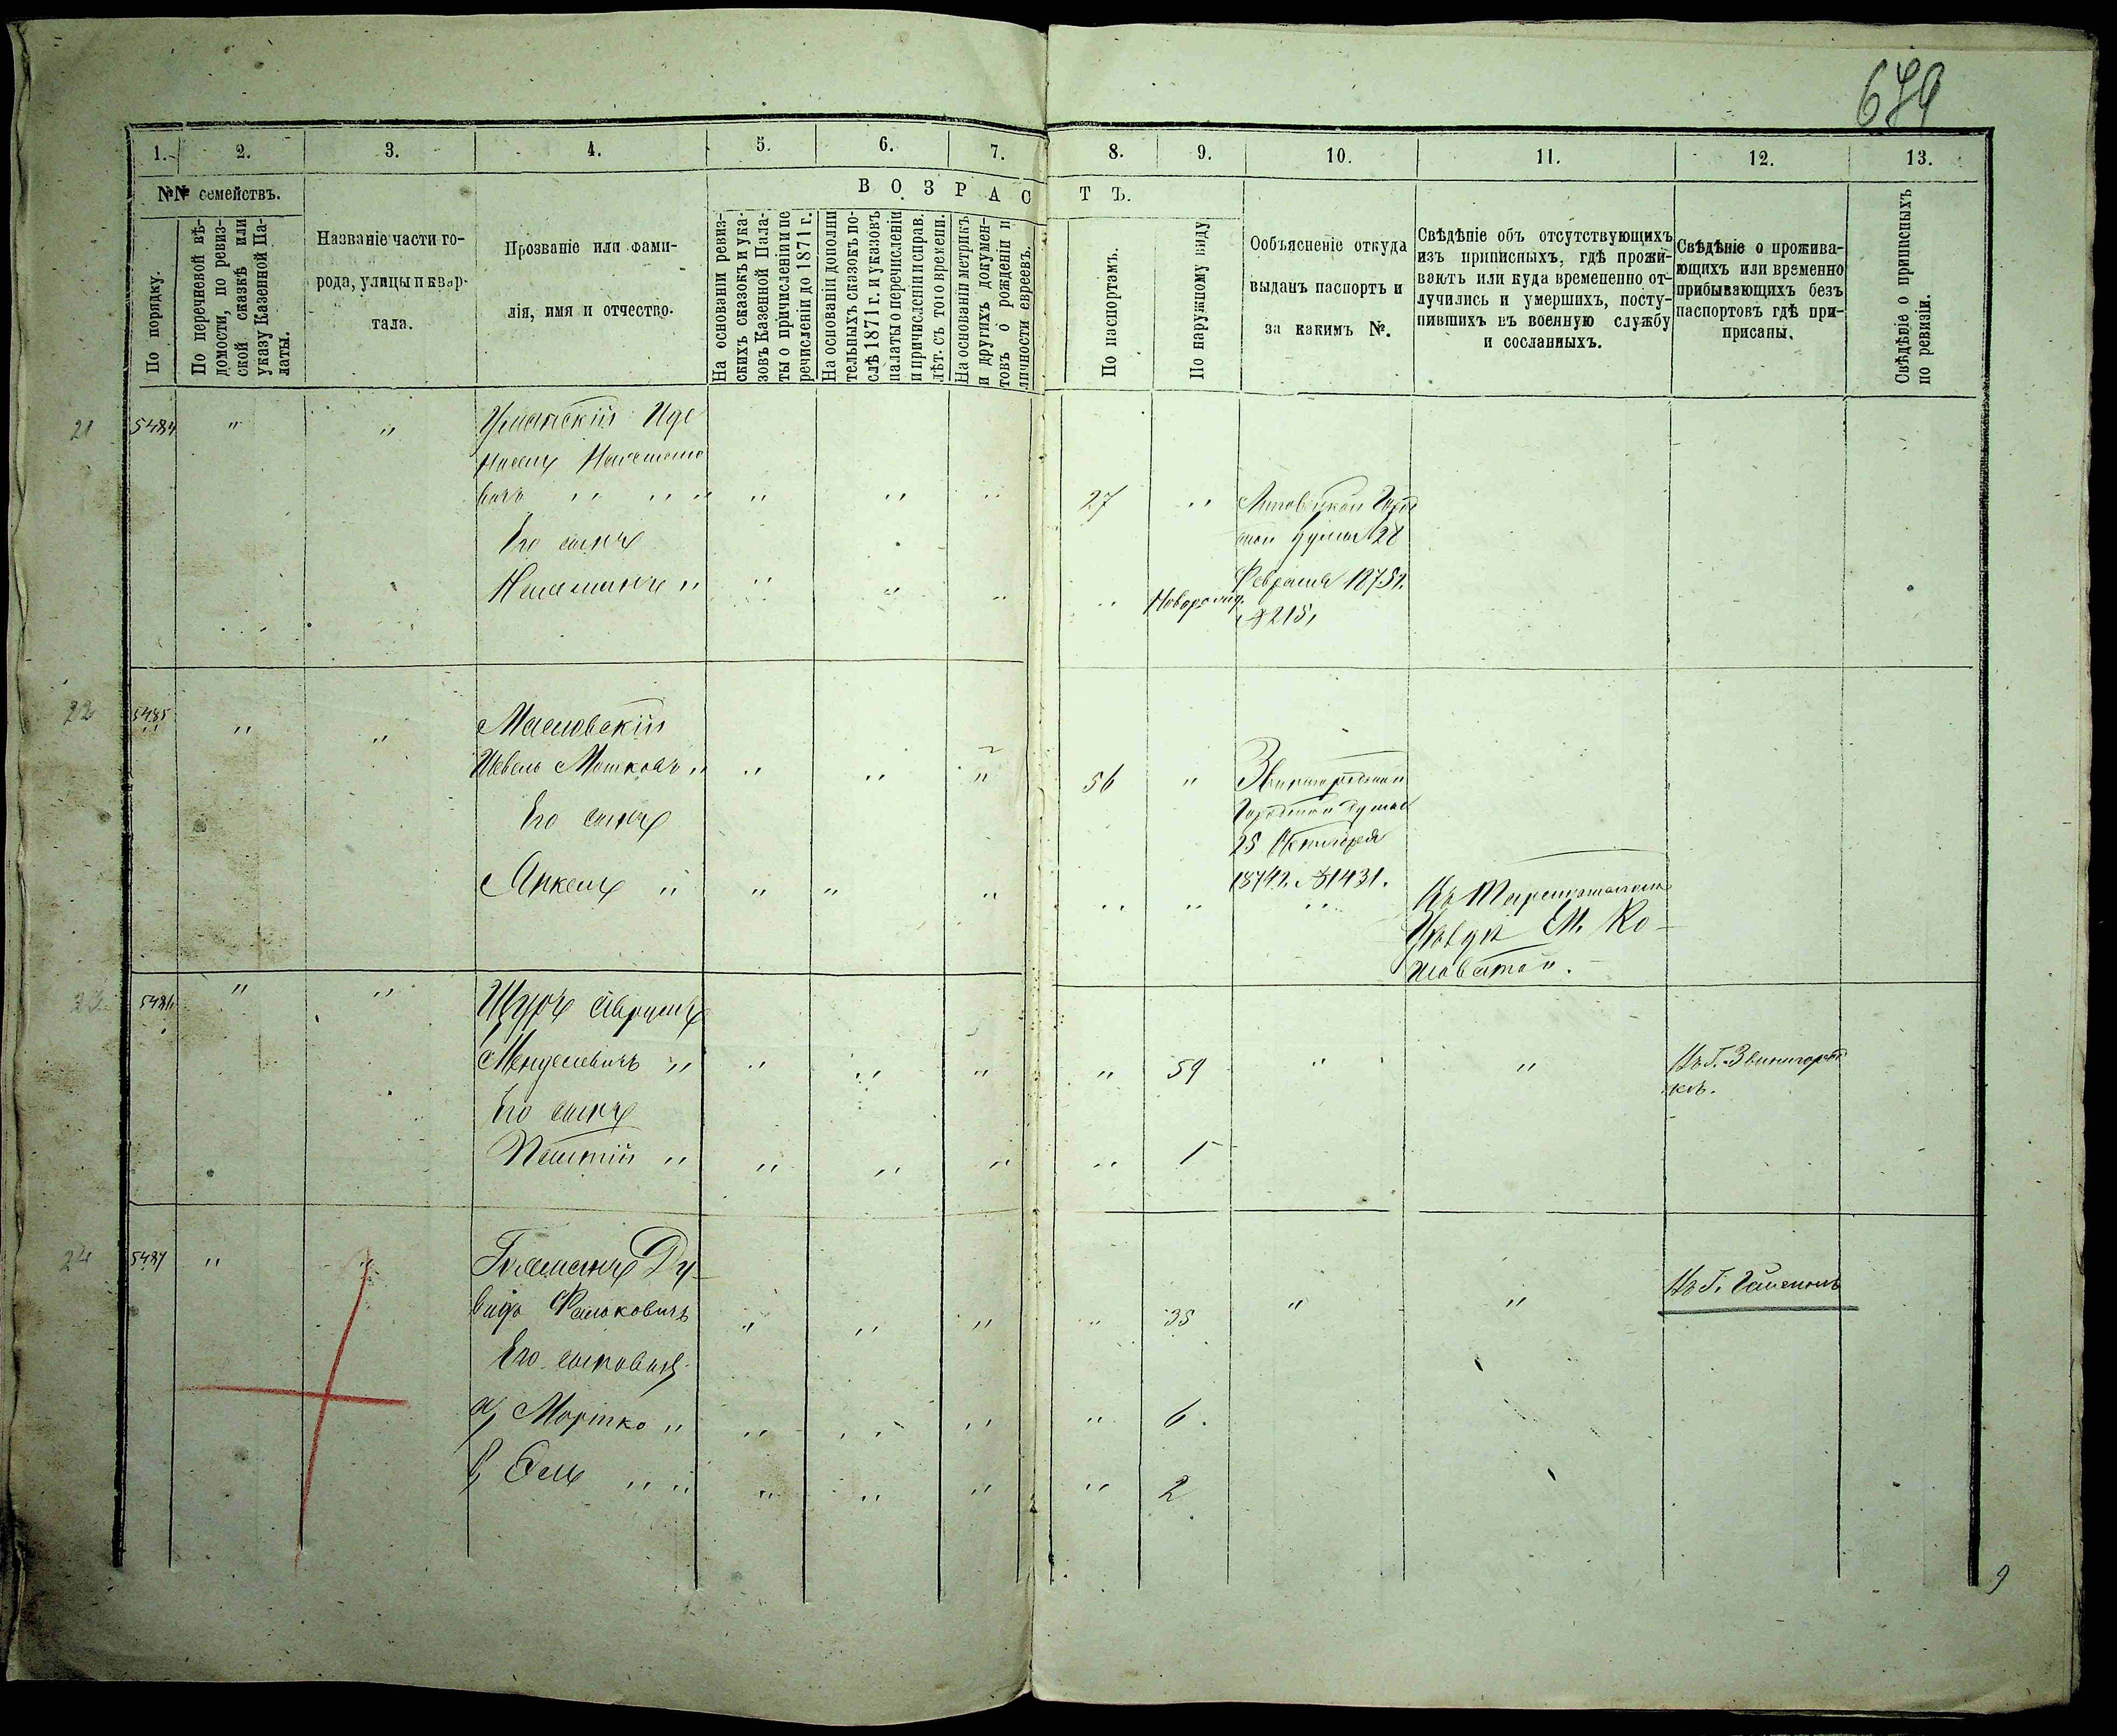 679
1. 2. 3. 4. 5. 6. 7. 8. 9. 10. 11. 12. 13.
№№ семействъ.
ВОЗРАСТЪ.
По порядку.
По перечневой вѣ-
домости, по ревиз-
ской сказкѣ или
указу Казенной Па-
латы.
Названіе части го-
рода, улицы и квар-
тала.
Прозваніе или фами-
лія, имя и отчество.
На основаніи ревиз-
скихъ сказокъ и ука-
зовъ Казенной Пала-
ты о причисленіи и пе
речисленіи до 1871 г.
На основаніи дополни
тельныхъ сказокъ по-
слѣ 1871 г. и указовъ
палаты о перечисленіи
и причисленіи и справ.
лѣт. съ того времени.
На основаніи метрикъ
и другихъ докумен-
товъ о рожденіи и
личности евреевъ.
По паспортамъ.
По наружному виду
Ообъясненіе откуда
выданъ паспортъ и
за какимъ №.
Свѣдѣніе объ отсутствующихъ
изъ приписныхъ, гдѣ прожи-
ваютъ или куда временно от-
лучились и умершихъ, посту-
пившихъ въ военную службу
и сосланныхъ.
Свѣдѣніе о прожива-
ющихъ или временно
прибывающихъ безъ
паспортовъ гдѣ при-
присаны.
Свѣдѣніе о приписныхъ
по ревизіи.
21 5484 " " Уманскій
вичъ " " " " " " 27 " Городс
Его сынъ кой Думы 28
" " " " " Новорожд. Февраля 1875 г.
№ 215,
22 5485 " " Масловскій
Мошковъ " " " " 56 " Звенигородской
Его сынъ Городской Думы
25 Октября
1874 г. № 1431.
Янкель " " " " " " " Въ Таращанскомъ
Уѣздѣ М. Ко-
шоватой.
23 5486 " " Щуръ Аврумъ
Менделевичъ " " " " " 59 " " Въ Г. Звенигород
кѣ.
Его сынъ
" " " " " 1
24 5487 " " Ду-
видъ Фальковичъ " " " " 35 " " Въ Г.
Его сыновья
а, Мортко " " " " " 6.
б, " " " " " " 2
9